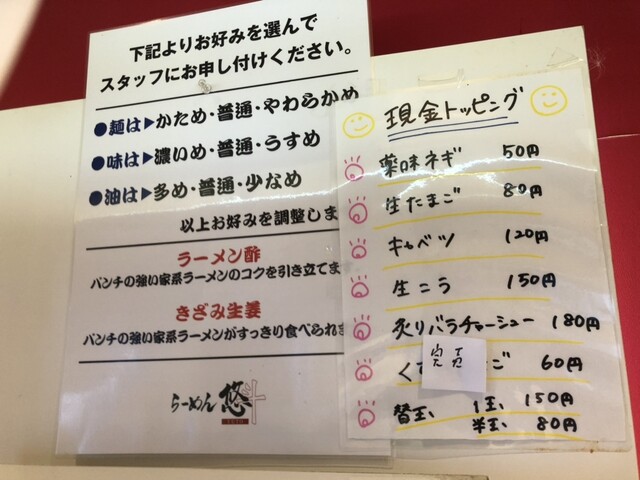 下記よりお好みを選んで
スタッフにお申し付けください。
●麺は▶かため・普通・やわらかめ
●味は▶濃いめ・普通・うすめ
●油は▶多め・普通・少なめ
以上お好みを調整しま
ラーメン酢
パンチの強い家系ラーメンのコクを引き立てま
きざみ生姜
パンチの強い家系ラーメンがすっきり食べられま
らーめん 悠斗
現金トッピング
薬味ネギ 50円
生たまご 80円
キャベツ 120円
生こう 150円
炙りバラチャーシュー 180円
く ご 60円
完売
替玉、1玉、150円
半玉 80円